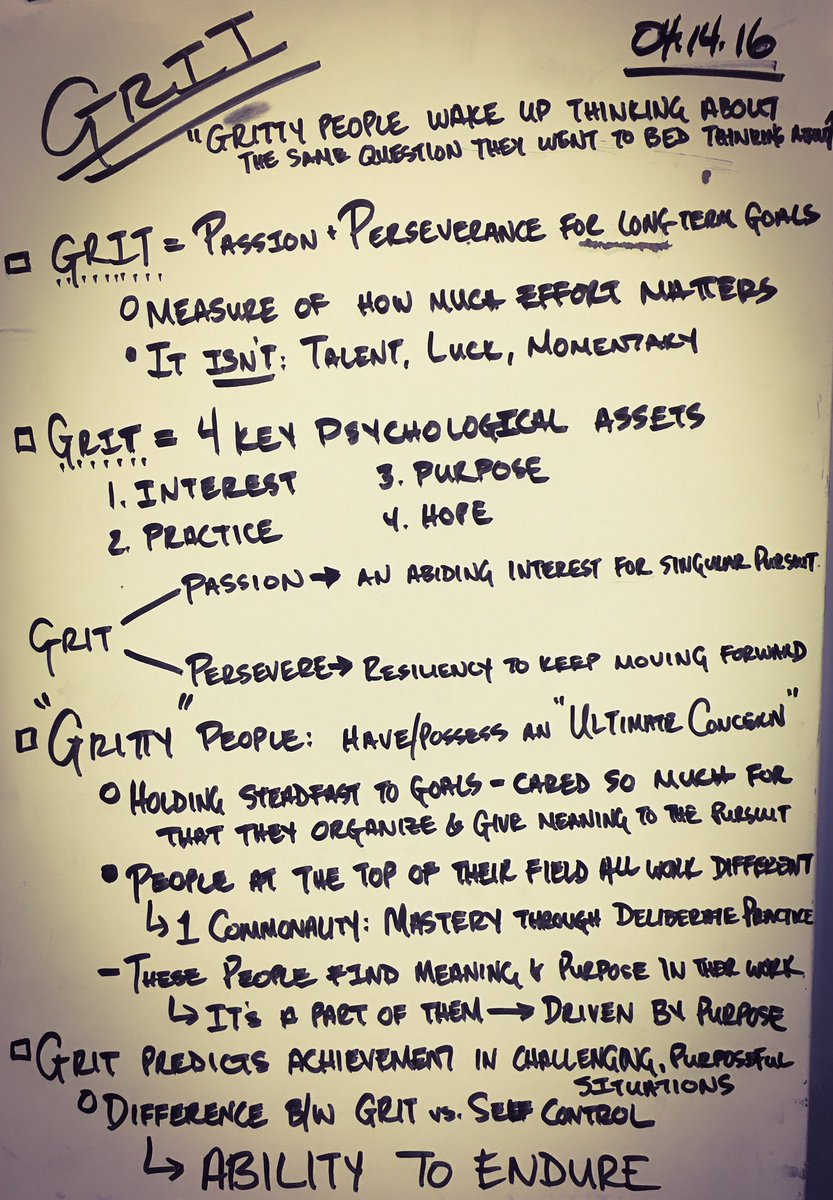 GRIT
04.14.16
"GRITTY PEOPLE WAKE UP THINKING ABOUT
THE SAME QUESTION THEY WENT TO BED THINKING ABOUT"
□ GRIT = PASSION + PERSEVERANCE FOR LONG-TERM GOALS
○ MEASURE OF HOW MUCH EFFORT MATTERS
• IT ISN'T: TALENT, LUCK, MOMENTARY
□ GRIT = 4 KEY PSYCHOLOGICAL ASSETS
1. INTEREST 3. PURPOSE
2. PRACTICE 4. HOPE
PASSION → AN ABIDING INTEREST FOR SINGULAR PURSUIT.
GRIT
PERSEVERE → RESILIENCY TO KEEP MOVING FORWARD
□ "GRITTY" PEOPLE: HAVE/POSSESS AN "ULTIMATE CONCERN"
○ HOLDING STEADFAST TO GOALS - CARED SO MUCH FOR
THAT THEY ORGANIZE & GIVE MEANING TO THE PURSUIT
• PEOPLE AT THE TOP OF THEIR FIELD ALL WORK DIFFERENT
↳ 1 COMMONALITY: MASTERY THROUGH DELIBERATE PRACTICE
- THESE PEOPLE FIND MEANING & PURPOSE IN THEIR WORK
↳ IT'S A PART OF THEM → DRIVEN BY PURPOSE
□ GRIT PREDICTS ACHIEVEMENT IN CHALLENGING, PURPOSEFUL
SITUATIONS
○ DIFFERENCE B/W GRIT vs. SELF CONTROL
↳ ABILITY TO ENDURE